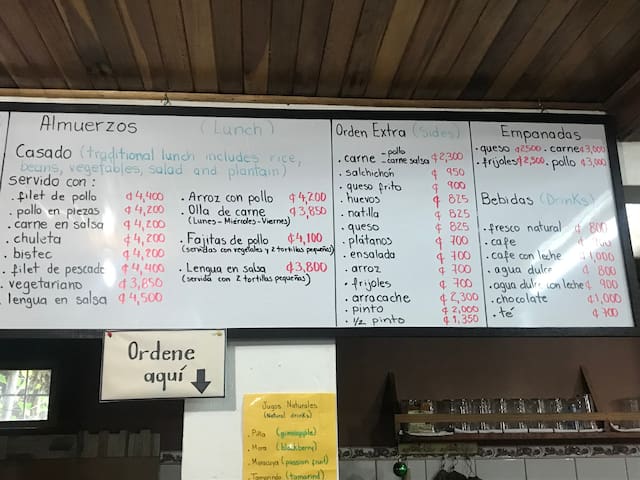 Almuerzos (Lunch)
Casado (traditional lunch includes rice,
beans, vegetables, salad and plantain)
servido con:
. filet de pollo ₡4,400
. pollo en piezas ₡4,200
. carne en salsa ₡4,200
. chuleta ₡4,200
. bistec ₡4,200
. filet de pescado ₡4,400
. vegetariano ₡3,850
. lengua en salsa ₡4,500
. Arroz con pollo ₡4,200
. Olla de carne ₡3,850
(Lunes-Miércoles-Viernes)
. Fajitas de pollo ₡4,100
(servidas con vegetales y 2 tortillas pequeñas)
. Lengua en salsa ₡3,800
(servida con 2 tortillas pequeñas)
Orden Extra (Sides)
. carne - pollo - carne salsa ₡2,300
. salchichón ₡950
. queso frito ₡900
. huevos ₡825
. natilla ₡825
. queso ₡825
. plátanos ₡700
. ensalada ₡700
. arroz ₡700
. frijoles ₡700
. arracache ₡2,300
. pinto ₡2,000
. ½ pinto ₡1,350
Empanadas
. queso ₡2500 . carne ₡3,000
. frijoles ₡2,500 . pollo ₡3,000
Bebidas (Drinks)
. fresco natural ₡800
. cafe
. cafe con leche ₡1,000
. agua dulce ₡800
. agua dulce con leche ₡900
. chocolate ₡1,000
. té ₡700
Ordene
aquí
Jugos Naturales
(Natural drinks)
. Piña (pineapple)
. Mora (blackberry)
. Maracuya (passion fruit)
. Tamarindo (tamarind)